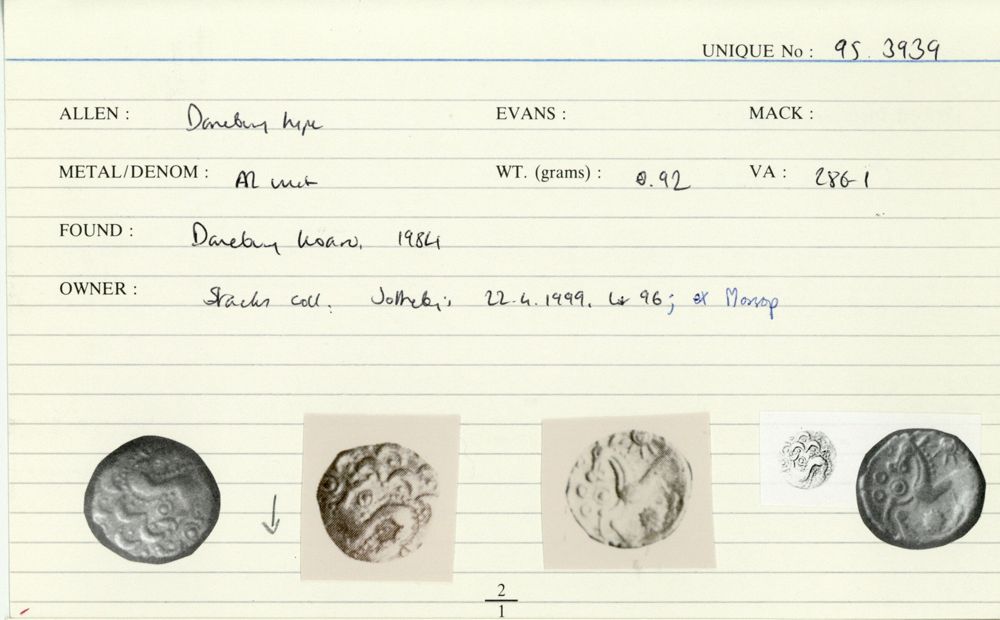 UNIQUE No : 95. 3939
ALLEN : Danebury type EVANS : MACK :
METAL/DENOM : AR unit WT. (grams) : 0.92 VA : 286-1
FOUND : Danebury hoard, 1984
OWNER : Stacks coll. Sotheby's 22.4.1999. Lot 96; ex Mossop
2
1